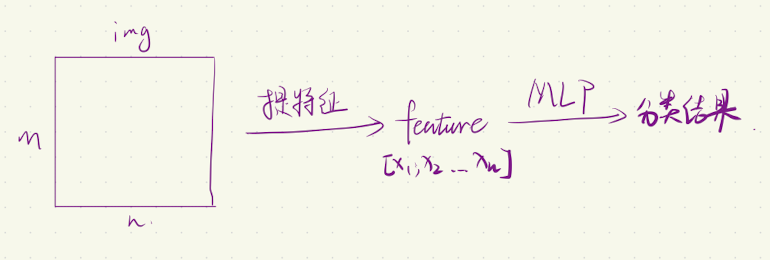 img
m
n
提特征
feature
[x₁,x₂...xₙ]
MLP
分类结果